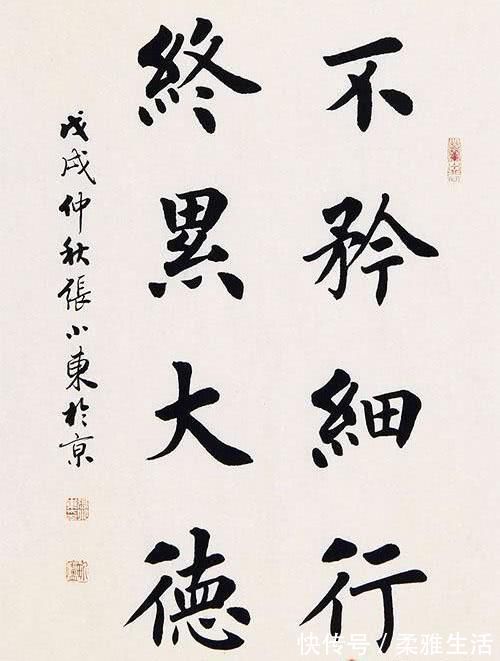 不矜細行
終累大德
戊戌仲秋張小東於京
快传号／柔雅生活